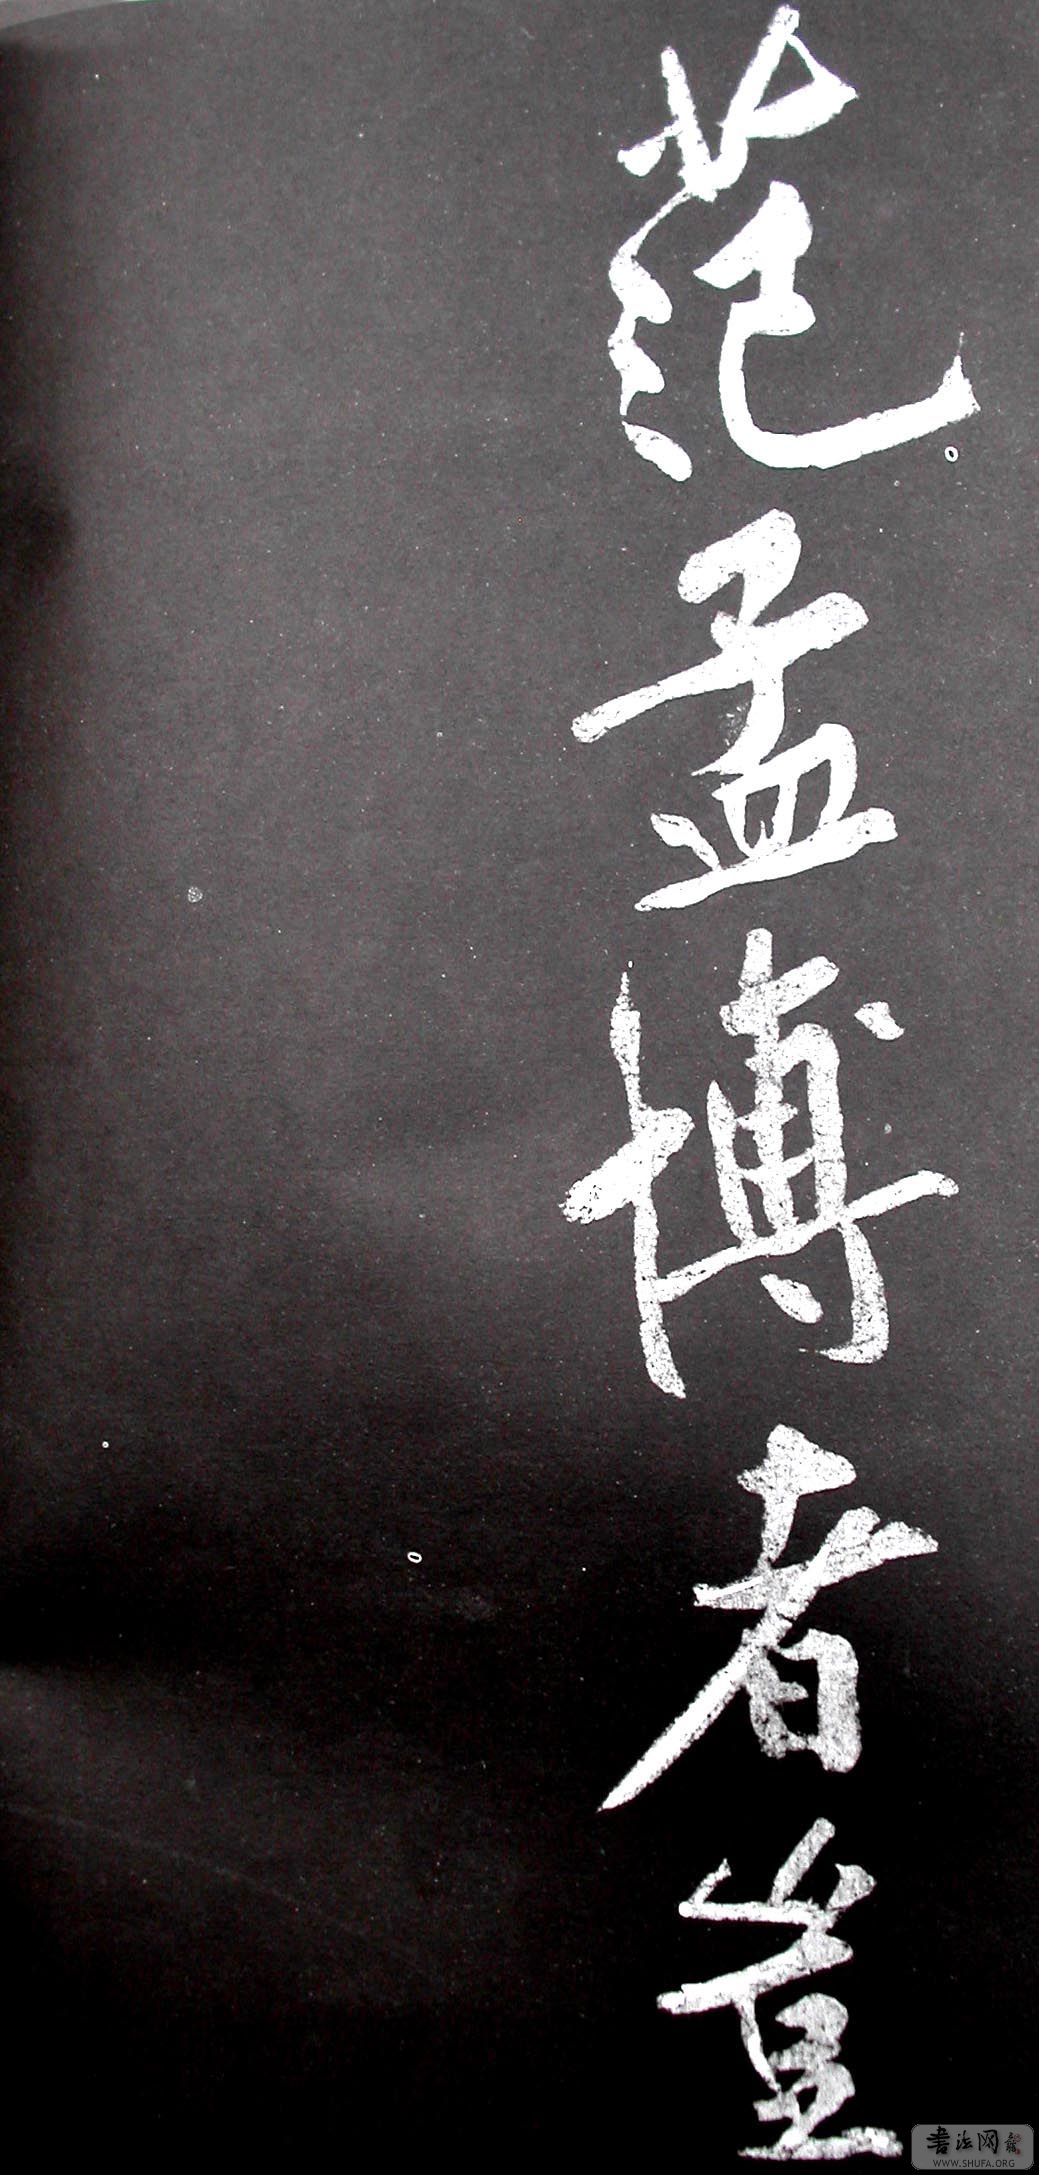 范孟博者豈
书法网
WWW.SHUFA.ORG